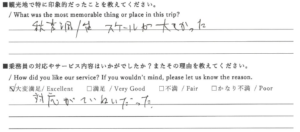 ■観光地で特に印象的だったことを教えてください。
/ What was the most memorable thing or place in this trip?
秋芳洞/ スケールが大きかった
■乗務員の対応やサービス内容はいかがでしたか?またその理由を教えてください。
/ How did you like our service? If you wouldn't mind, please let us know the reason.
☑大変満足 / Excellent □満足 / Very Good □不満 / Fair □かなり不満 / Poor
対応がていねいだった。